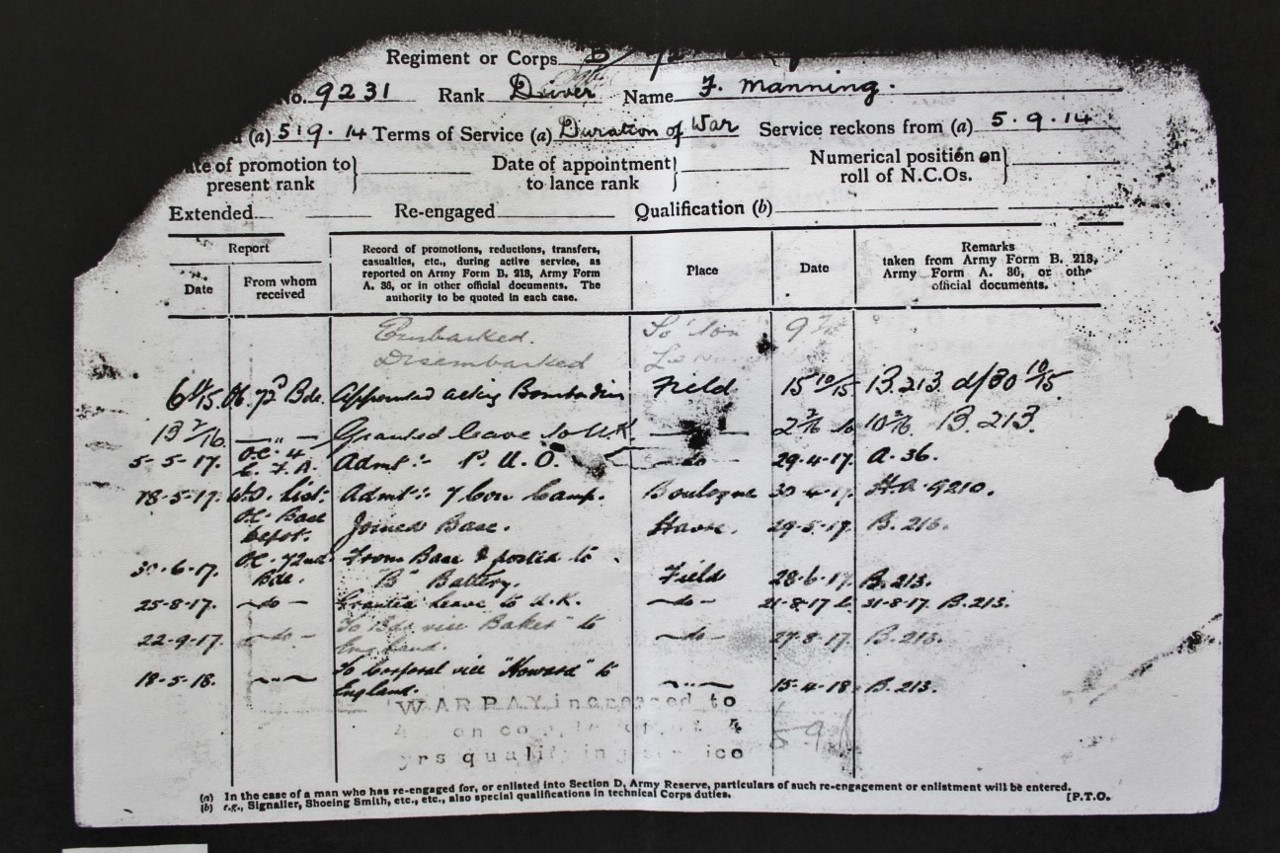 Regiment or Corps B/72
No. 9231 Rank Driver Name F. Manning.
(a) 5.9.14 Terms of Service (a) Duration of War Service reckons from (a) 5.9.14
ate of promotion to present rank} Date of appointment to lance rank} Numerical position on roll of N.C.Os.}
Extended Re-engaged Qualification (b)
Report
Date
From whom received
Record of promotions, reductions, transfers, casualties, etc., during active service, as reported on Army Form B. 213, Army Form A. 36, or in other official documents. The authority to be quoted in each case.
Place
Date
Remarks
taken from Army Form B. 213, Army Form A. 36, or othe official documents.
Embarked. So'ton
Disembarked
Oc. 72 Bde. Appointed acting Bombardier Field 15 10/15 B.213. d/30 10/15
13 2/16. —"— Granted leave to U.K. 2 2/16 to 10 2/16 B.213.
5-5-17. O.C. 4 C.F.A. Admt:- P.U.O. —do— 29-4-17. A.36.
18-5-17. W.O. List Admt:- 7 Con Camp. Boulogne 30-4-17. HA 9210.
OC. Base Depot. Joined Base. Havre. 29-5-17. B.213.
30-6-17. OC. 72nd Bde. From Base & posted to "B" Battery. Field 28-6-17. B.213.
25-8-17. —do— Granted leave to U.K. —do— 21-8-17 to 31-8-17. B.213.
22-9-17. —do— To Bdr vice "Baker" to England. —do— 27-8-17. B.213.
18-5-18. —"— To Corporal vice "Howard" to England. —"— 15-4-18. B.213.
WAR PAY increased to
on co
yrs qualifying service
(a) In the case of a man who has re-engaged for, or enlisted into Section D, Army Reserve, particulars of such re-engagement or enlistment will be entered.
(b) e.g., Signaller, Shoeing Smith, etc., etc., also special qualifications in technical Corps duties. [P.T.O.